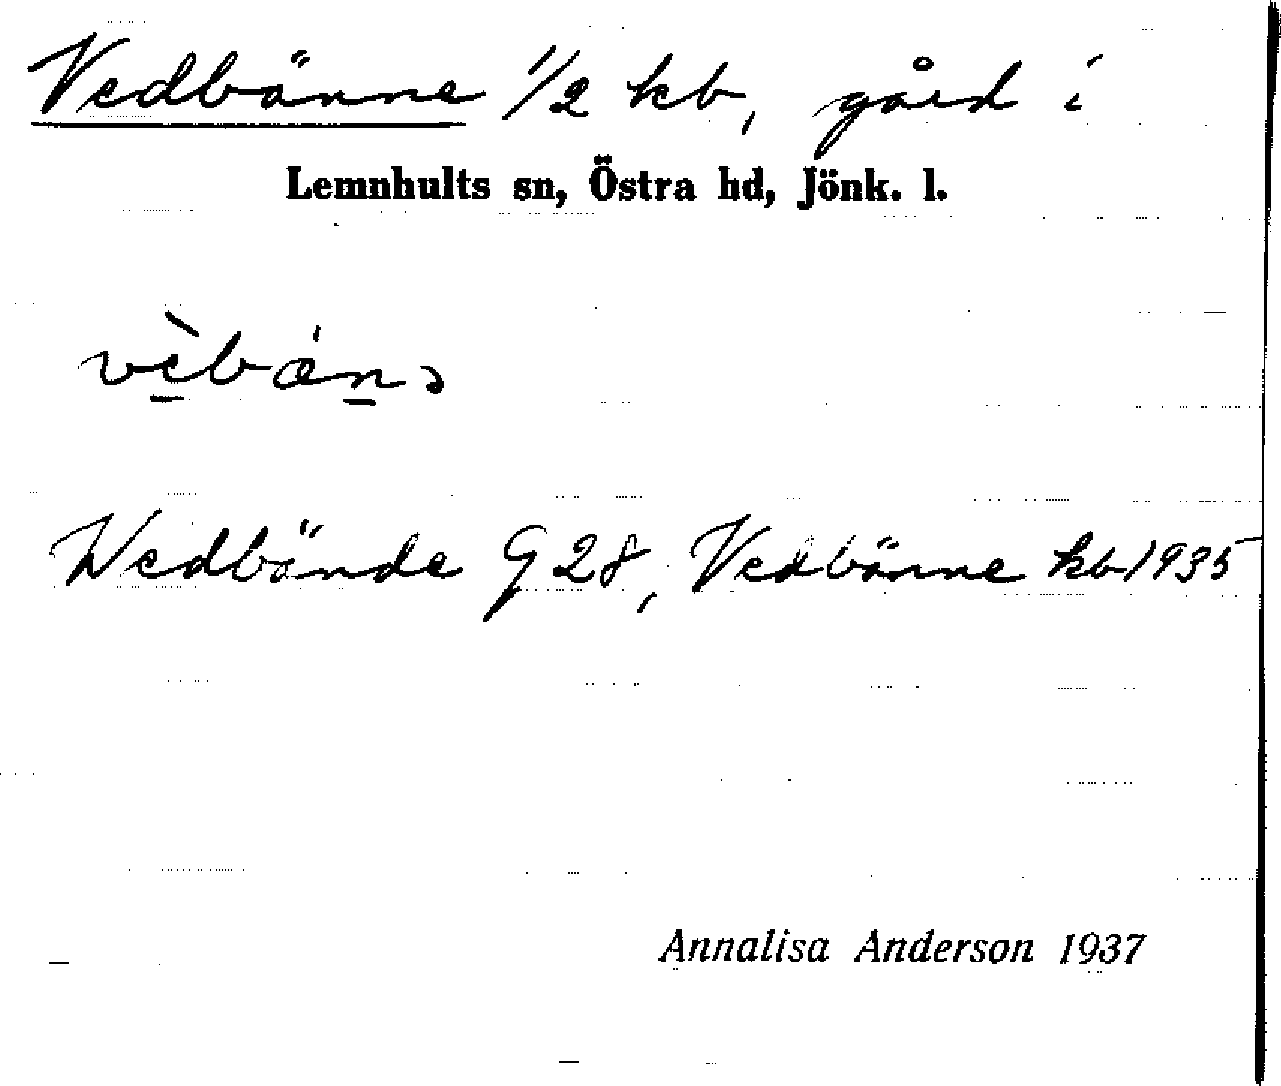 Vedbänne 1/2 kb, gård i
Lemnhults sn, Östra hd, Jönk. l.
vèbǽnə
Wedbände G 28, Vedbänne kb 1935
Annalisa Anderson 1937